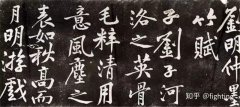 劉明仲墨
竹賦
子劉子河
洛之英骨
毛粹清用
意風塵之
表如秋高而
月明游戲
知乎